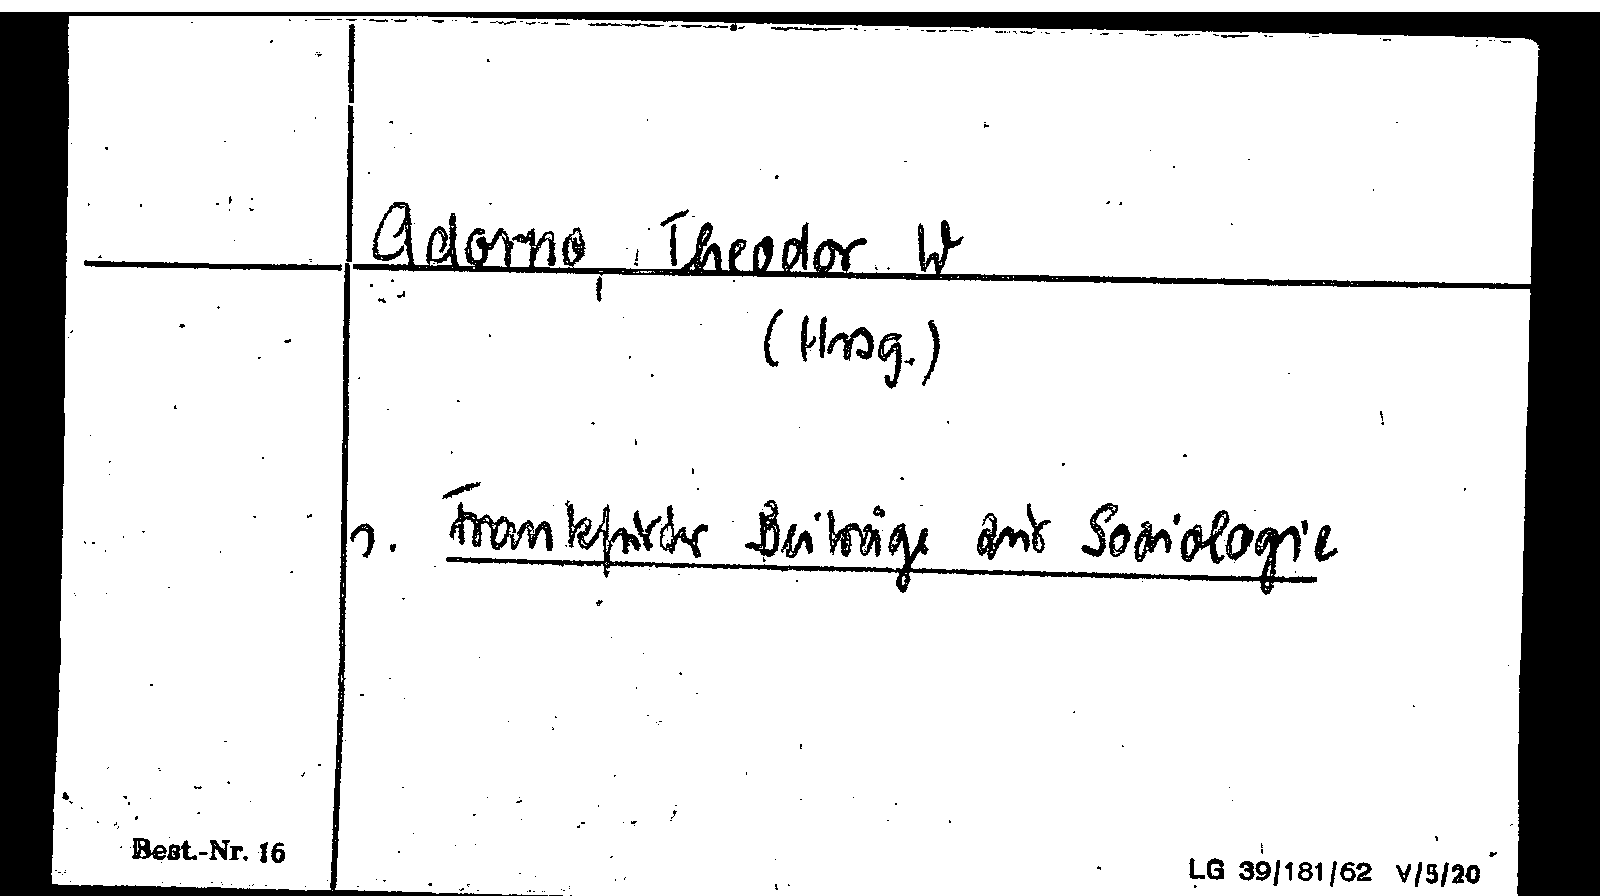 Adorno, Theodor W
(Hrsg.)
s. Frankfurter Beiträge zur Soziologie
Best.-Nr. 16
LG 39/181/62 V/5/20